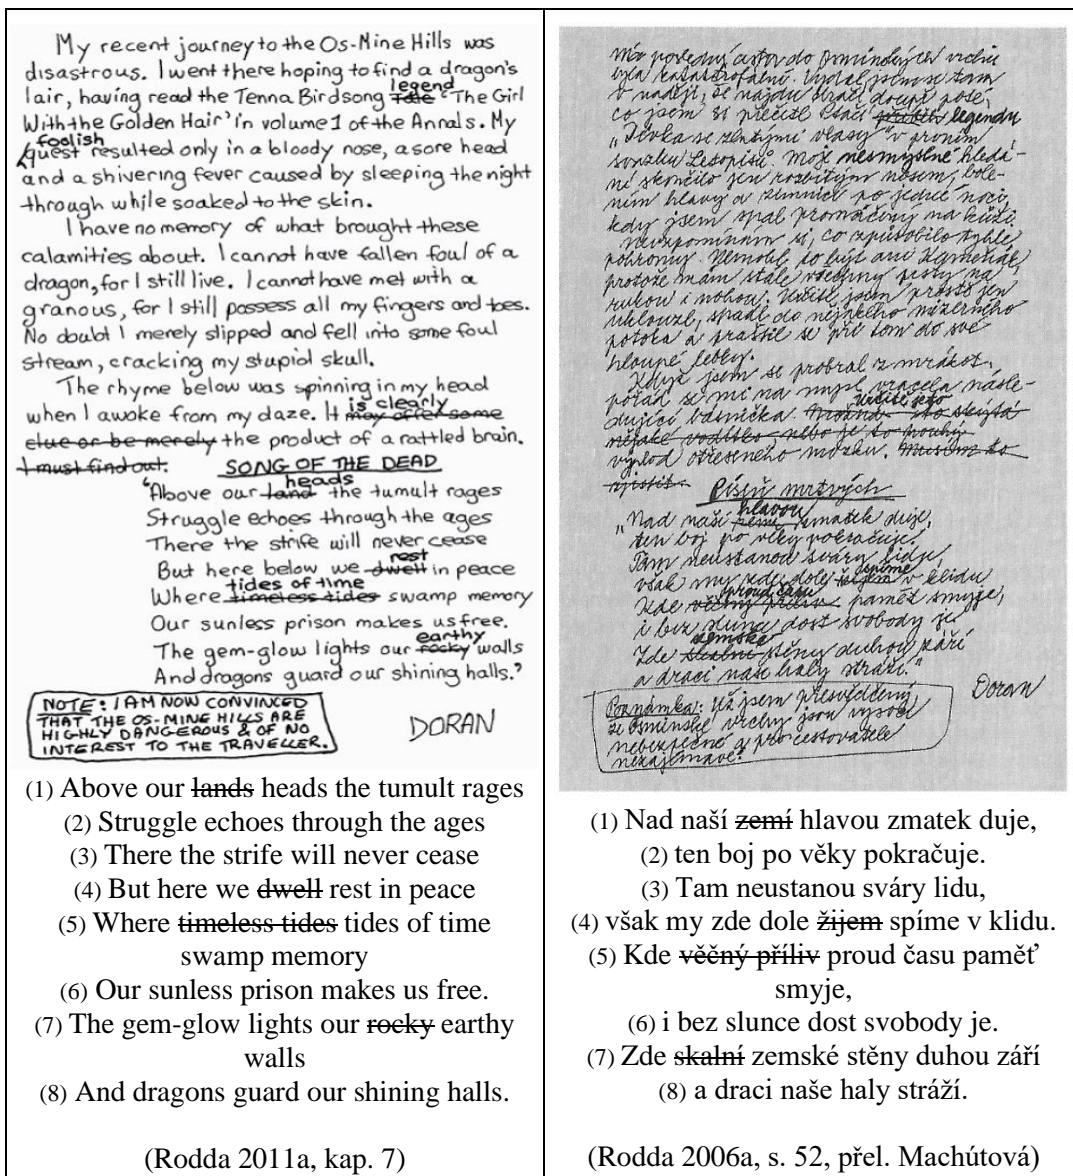 My recent journey to the Os-Mine Hills was
disastrous. I went there hoping to find a dragon's
legend
lair, having read the Tenna Birdsong Tale 'The Girl
With the Golden Hair' in volume 1 of the Annals. My
foolish
quest resulted only in a bloody nose, a sore head
and a shivering fever caused by sleeping the night
through while soaked to the skin.
I have no memory of what brought these
calamities about. I cannot have fallen foul of a
dragon, for I still live. I cannot have met with a
granous, for I still possess all my fingers and toes.
No doubt I merely slipped and fell into some foul
stream, cracking my stupid skull.
The rhyme below was spinning in my head
is clearly
when I awoke from my daze. It may offer some
clue or be merely the product of a rattled brain.
I must find out.
SONG OF THE DEAD
heads
"Above our land the tumult rages
Struggle echoes through the ages
There the strife will never cease
rest
But here below we dwell in peace
tides of time
Where timeless tides swamp memory
Our sunless prison makes us free.
earthy
The gem-glow lights our rocky walls
And dragons guard our shining halls."
NOTE: I AM NOW CONVINCED
THAT THE OS-MINE HILLS ARE
HIGHLY DANGEROUS & OF NO
INTEREST TO THE TRAVELLER.
DORAN
(1) Above our lands heads the tumult rages
(2) Struggle echoes through the ages
(3) There the strife will never cease
(4) But here we dwell rest in peace
(5) Where timeless tides tides of time
swamp memory
(6) Our sunless prison makes us free.
(7) The gem-glow lights our rocky earthy
walls
(8) And dragons guard our shining halls.
(Rodda 2011a, kap. 7)
do Osminských vrchů
byla katastrofální. Vydal jsem se tam
v naději, že najdu dračí doupě poté,
co jsem si přečetl ptačí příběh legendu
„Dívka se zlatými vlasy" v prvním
svazku Letopisů. Moje nesmyslné hledá-
ní skončilo jen rozbitým nosem, bole-
ním hlavy a zimnicí po jedné noci,
kdy jsem spal promáčený na kůži.
Nevzpomínám si, co způsobilo tyhle
pohromy. Nemohl to být ani
protože mám stále všechny prsty na
rukou i nohou. Určitě jsem prostě jen
uklouzl, spadl do nějakého mizerného
potoka a praštil se při tom do své
hloupé lebky.
Když jsem se probral z mrákot,
pořád se mi na mysl vracela násle-
Určitě je to
dující básnička. Možná sto skýtá
nějaké vodítko nebo je to pouhý
výplod otřeseného mozku. Musím to
zjistit.
Píseň mrtvých
hlavou
„Nad naší zemí zmatek duje,
ten boj po věky pokračuje.
Tam neustanou sváry lidu,
spíme
však my zde dole žijem v klidu
proud času
Kde věčný příliv paměť smyje,
i bez slunce dost svobody je
zemské
Zde skalní stěny duhou září
a draci naše haly stráží."
Doran
Poznámka: Už jsem přesvědčený,
že Osminské vrchy jsou vysoce
nebezpečné a pro cestovatele
nezajímavé.
(1) Nad naší zemí hlavou zmatek duje,
(2) ten boj po věky pokračuje.
(3) Tam neustanou sváry lidu,
(4) však my zde dole žijem spíme v klidu.
(5) Kde věčný příliv proud času paměť
smyje,
(6) i bez slunce dost svobody je.
(7) Zde skalní zemské stěny duhou září
(8) a draci naše haly stráží.
(Rodda 2006a, s. 52, přel. Machútová)